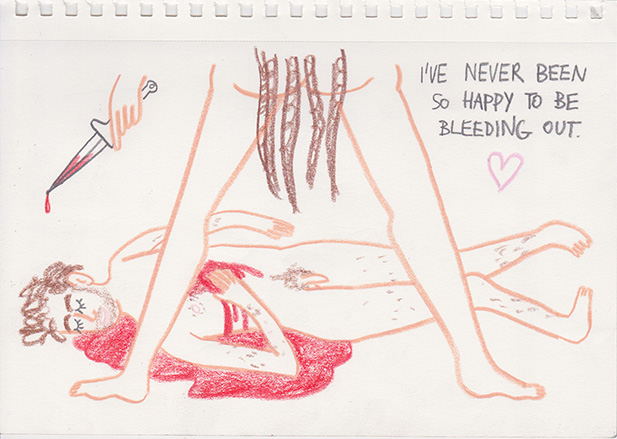 I'VE NEVER BEEN
SO HAPPY TO BE
BLEEDING OUT.